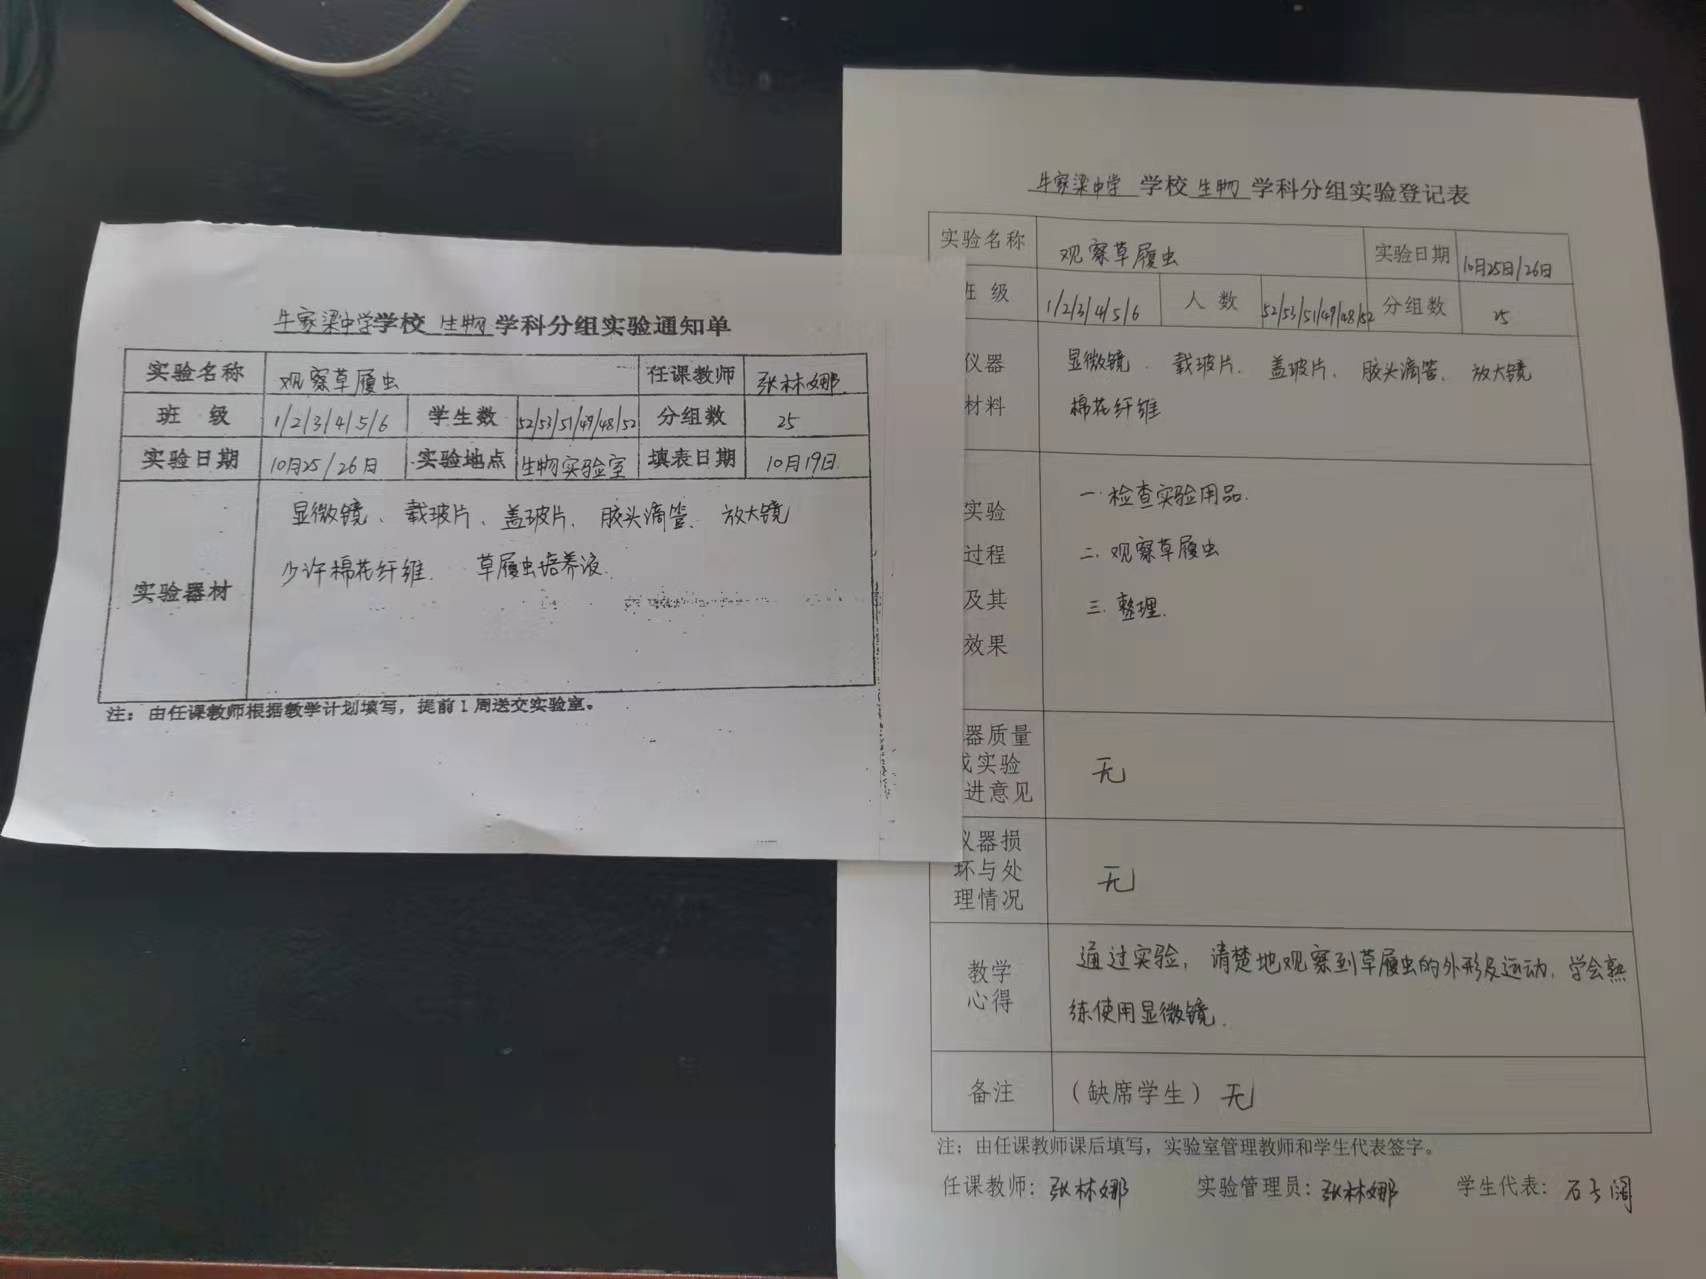 牛家梁中学学校生物学科分组实验通知单
实验名称 观察草履虫 任课教师 张林娜
班 级 1/2/3/4/5/6 学生数 52/53/51/49/48/52 分组数 25
实验日期 10月25/26日 实验地点 生物实验室 填表日期 10月19日
实验器材
显微镜、载玻片、盖玻片、胶头滴管、放大镜
少许棉花纤维、草履虫培养液
注：由任课教师根据教学计划填写，提前1周送交实验室。
牛家梁中学 学校 生物 学科分组实验登记表
实验名称 观察草履虫 实验日期 10月25日/26日
班 级 1/2/3/4/5/6 人 数 52/53/51/49/48/52 分组数 25
仪器
材料
显微镜、载玻片、盖玻片、胶头滴管、放大镜
棉花纤维
实验
过程
及其
效果
一.检查实验用品.
二.观察草履虫
三.整理.
器质量
或实验
进意见
无
仪器损
坏与处
理情况
无
教学
心得
通过实验，清楚地观察到草履虫的外形及运动，学会熟
练使用显微镜.
备注 （缺席学生）无
注：由任课教师课后填写，实验室管理教师和学生代表签字。
任课教师：张林娜 实验管理员：张林娜 学生代表：石子阔